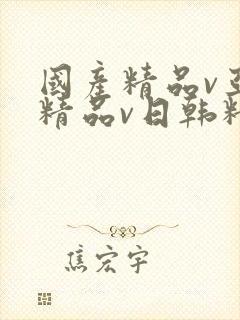 國產精品v
精品v日韩精
焦宏宇